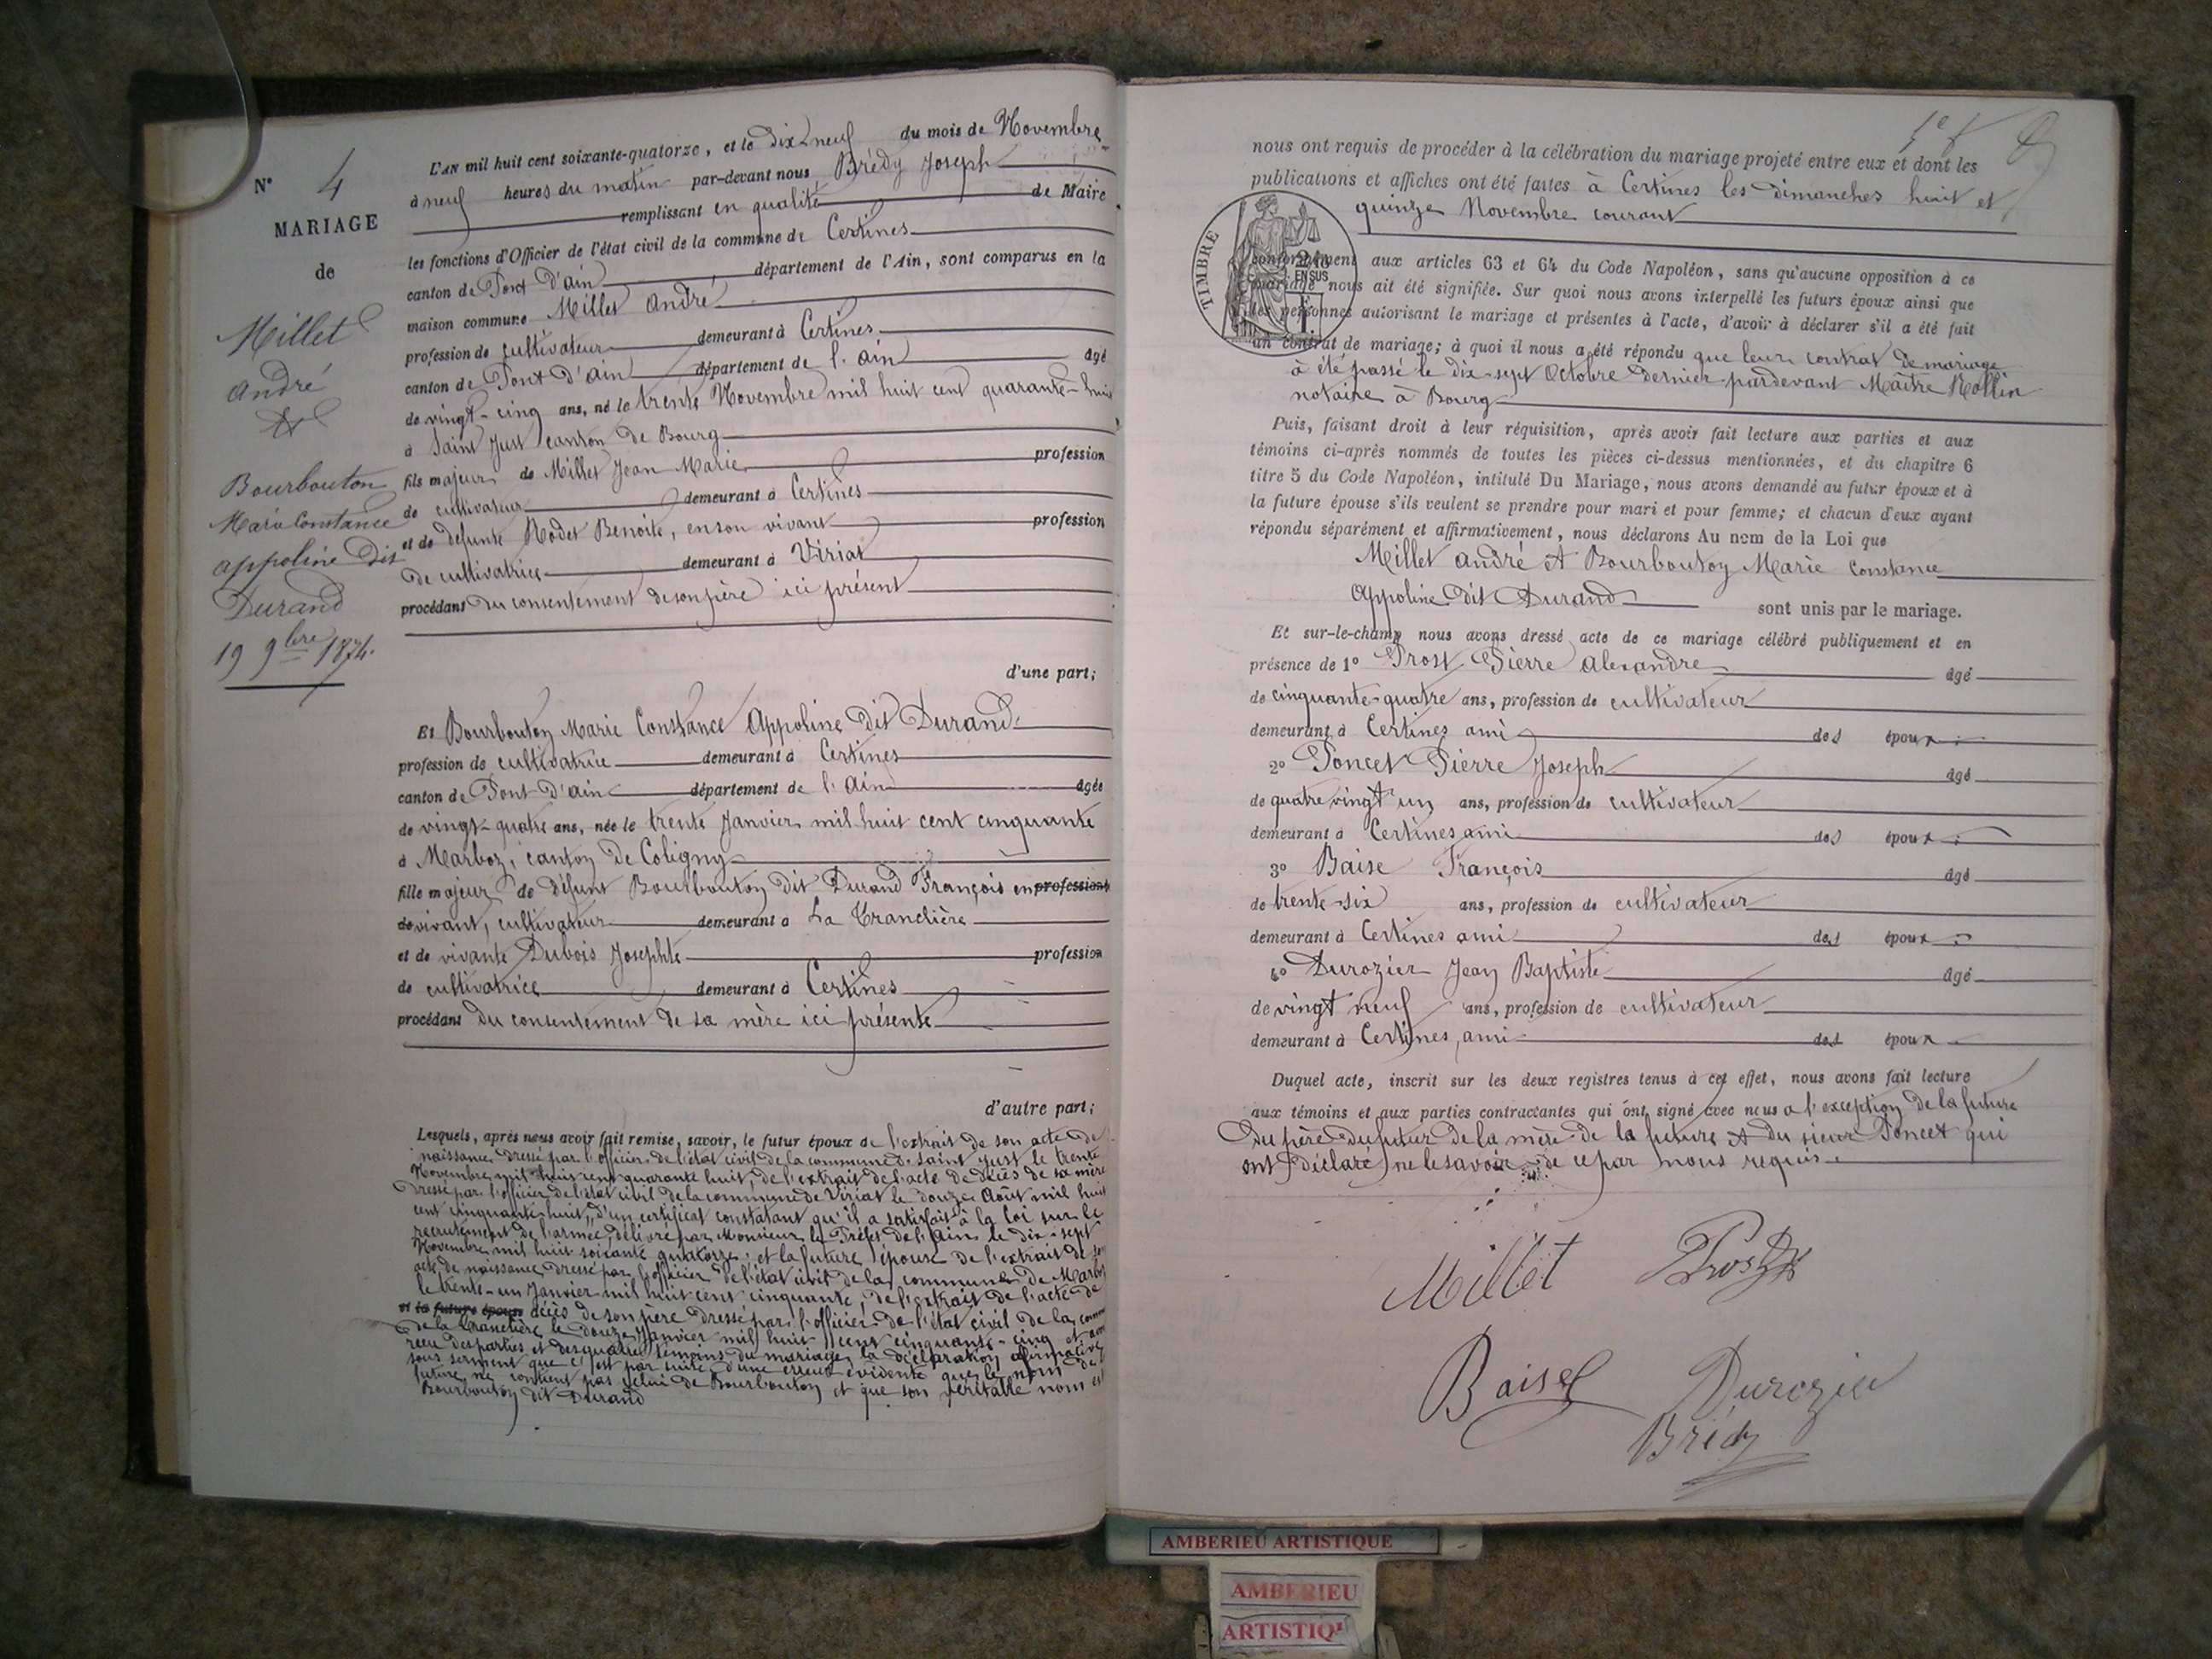 N° 4
MARIAGE
de
Millet
André
&
Bourbouton
Marie Constance
appoline Dit
Durand
19 9bre 1874.
L'AN mil huit cent soixante-quatorze, et le dix-neuf du mois de Novembre
à neuf heures du matin par-devant nous Brédy Joseph
remplissant en qualité de Maire
les fonctions d'Officier de l'état civil de la commune de Certines
canton de Pont d'ain département de l'Ain, sont comparus en la
maison commune Millet André
profession de cultivateur demeurant à Certines
canton de Pont d'ain département de l'ain âgé
de vingt-cinq ans, né le trente Novembre mil huit cent quarante-huit
à Saint Just canton de Bourg
fils majeur de Millet Jean Marie profession
de cultivateur demeurant à Certines
et de defunte Rodet Benoite, en son vivant profession
de cultivatrice demeurant à Viriat
procédant du consentement de son père ici présent
d'une part;
Et Bourbouton Marie Constance Appoline Dit Durand
profession de cultivatrice demeurant à Certines
canton de Pont d'ain département de l'Ain âgée
de vingt-quatre ans, née le trente Janvier mil huit cent cinquante
à Marboz, canton de Coligny
fille majeur de défunt Bourbouton dit Durand François en profession
de vivant, cultivateur demeurant à La Tranclière
et de vivante Dubois Josephte profession
de cultivatrice demeurant à Certines
procédant du consentement de sa mère ici présente
d'autre part;
Lesquels, après nous avoir fait remise, savoir, le futur époux de l'extrait de son acte de
naissance dressé par l'officier de l'état civil de la commune de Saint Just le trente
Novembre mil huit cent quarante huit, de l'extrait de l'acte de décès de sa mère
dressé par l'officier de l'état civil de la commune de Viriat le douze Août mil huit
cent cinquante huit, d'un certificat constatant qu'il a satisfait à la loi sur le
recrutement de l'armée, délivré par Monsieur le Préfet de l'Ain le dix-sept
Novembre mil huit soixante quatorze; et la future épouse de l'extrait de son
acte de naissance dressé par l'officier de l'état civil de la commune de Marboz
le trente-un Janvier mil huit cent cinquante, de l'extrait de l'acte de
et la future épouse décès de son père dressé par l'officier de l'état civil de la commune
de la Tranclière le douze Janvier mil huit cent cinquante-cinq et avons
reçu des parties et des quatre témoins du mariage, la déclaration afirmative
sous serment que c'est par suite d'une erreur évidente que le nom de
future ne contient pas celui de Bourbouton et que son véritable nom est
Bourbouton dit Durand
nous ont requis de procéder à la célébration du mariage projeté entre eux et dont les
publications et affiches ont été faites à Certines les dimanches huit et
quinze Novembre courant
TIMBRE
2/10
EN SUS
conformément aux articles 63 et 64 du Code Napoléon, sans qu'aucune opposition à ce
mariage nous ait été signifiée. Sur quoi nous avons interpellé les futurs époux ainsi que
les personnes autorisant le mariage et présentes à l'acte, d'avoir à déclarer s'il a été fait
un contrat de mariage; à quoi il nous a été répondu que leur contrat de mariage
a été passé le dix-sept Octobre dernier pardevant Maître Rollin
notaire à Bourg
Puis, faisant droit à leur réquisition, après avoir fait lecture aux parties et aux
témoins ci-après nommés de toutes les pièces ci-dessus mentionnées, et du chapitre 6
titre 5 du Code Napoléon, intitulé Du Mariage, nous avons demandé au futur époux et à
la future épouse s'ils veulent se prendre pour mari et pour femme; et chacun d'eux ayant
répondu séparément et affirmativement, nous déclarons Au nom de la Loi que
Millet André et Bourbouton Marie Constance
Appoline Dit Durand sont unis par le mariage.
Et sur-le-champ nous avons dressé acte de ce mariage célébré publiquement et en
présence de 1° Prost Pierre Alexandre âgé
de cinquante-quatre ans, profession de cultivateur
demeurant à Certines ami des époux
2° Poncet Pierre Joseph âgé
de quatre vingt un ans, profession de cultivateur
demeurant à Certines ami des époux
3° Baise François âgé
de trente-six ans, profession de cultivateur
demeurant à Certines ami des époux
4° Durozier Jean Baptiste âgé
de vingt neuf ans, profession de cultivateur
demeurant à Certines, ami des époux
Duquel acte, inscrit sur les deux registres tenus à cet effet, nous avons fait lecture
aux témoins et aux parties contractantes qui ont signé avec nous a l'exception de la future
du père du futur de la mère de la future et du sieur Poncet qui
ont déclaré ne le savoir de ce par nous requis.
Millet Prost
Baise Durozier
Brédy
AMBERIEU ARTISTIQUE
AMBERIEU
ARTISTIQ